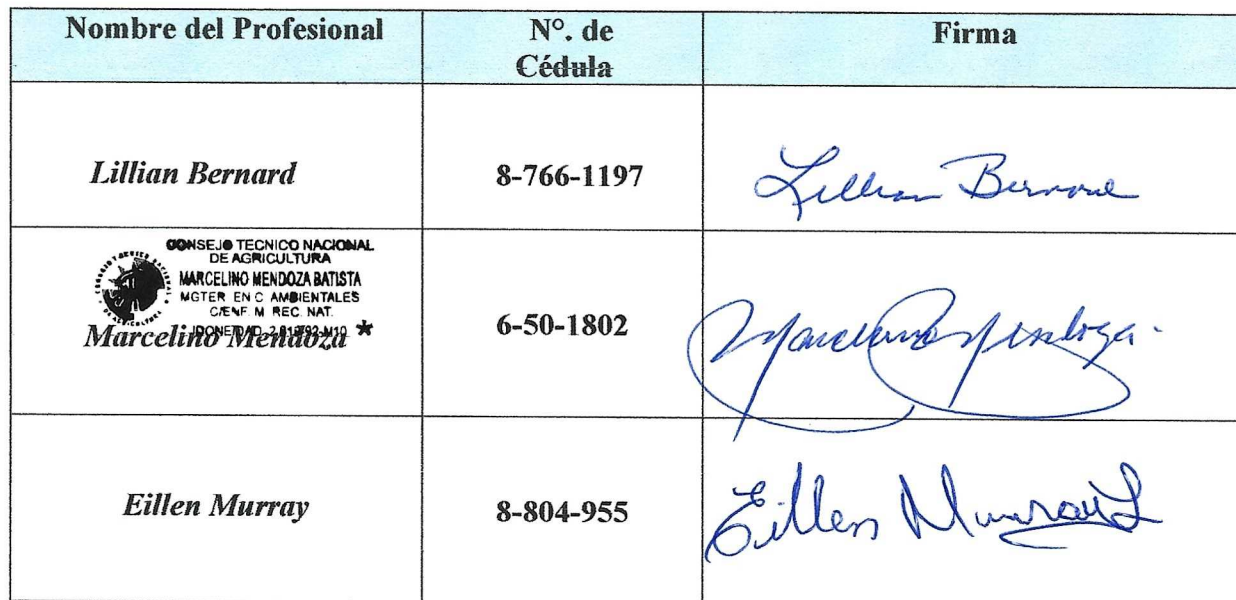 Nombre del Profesional
N°. de
Cédula
Firma
Lillian Bernard
8-766-1197
Lillian Bernard
CONSEJO TECNICO NACIONAL
DE AGRICULTURA
MARCELINO MENDOZA BATISTA
MGTER EN C AMBIENTALES
C/ENF. M REC. NAT.
IDONEIDAD
Marcelino Mendoza *
6-50-1802
Marcelino Mendoza
Eillen Murray
8-804-955
Eillen Murray L